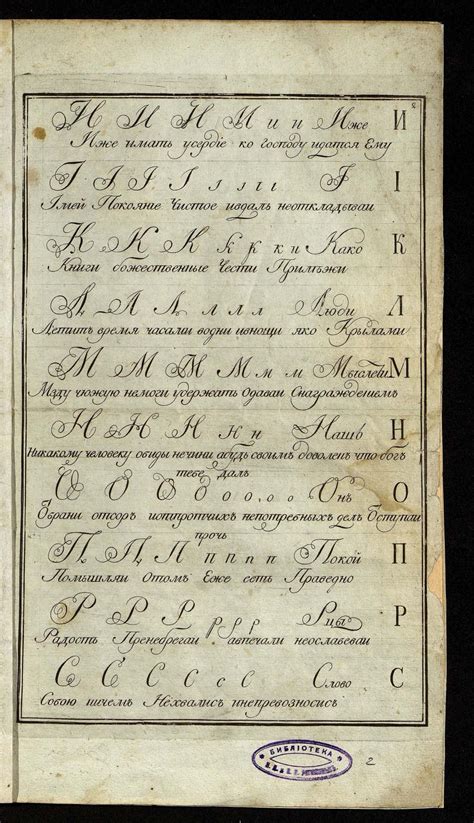 И И И И и н Иже И
Иже имать усердіе ко господу щатся Ему
І І І І і ііі І І
Імей Покояние Чистое вдаль неоткладываи
К К К К к ки Како К
Книги божественные Чести Прилѣжи
Л Л Л л л л Люди Л
Летитъ время часами водни ивнощи яко Крылами
М М М М м м Мыслети М
Мзду чюжую немоги удержать Одаваи Снаграждениемъ
Н Н Н Н н н Нашъ Н
Никакому человеку обиды нечини абудь своимъ доволенъ что богъ
тебе далъ
О О О О о о о о Онъ О
Обрани отсоръ иотпротчихъ непотребныхъ делъ Оступаи
прочь
П П П п п п п Покой П
Помышляи Отомъ Еже есть Праведно
Р Р Р р р р Рцы Р
Радость Пренебрегаи авпечали неослабеваи
С С С С с с Слово С
Собою ничемъ Нехвалисъ инепревозносисъ
БИБЛІОТЕКА
2